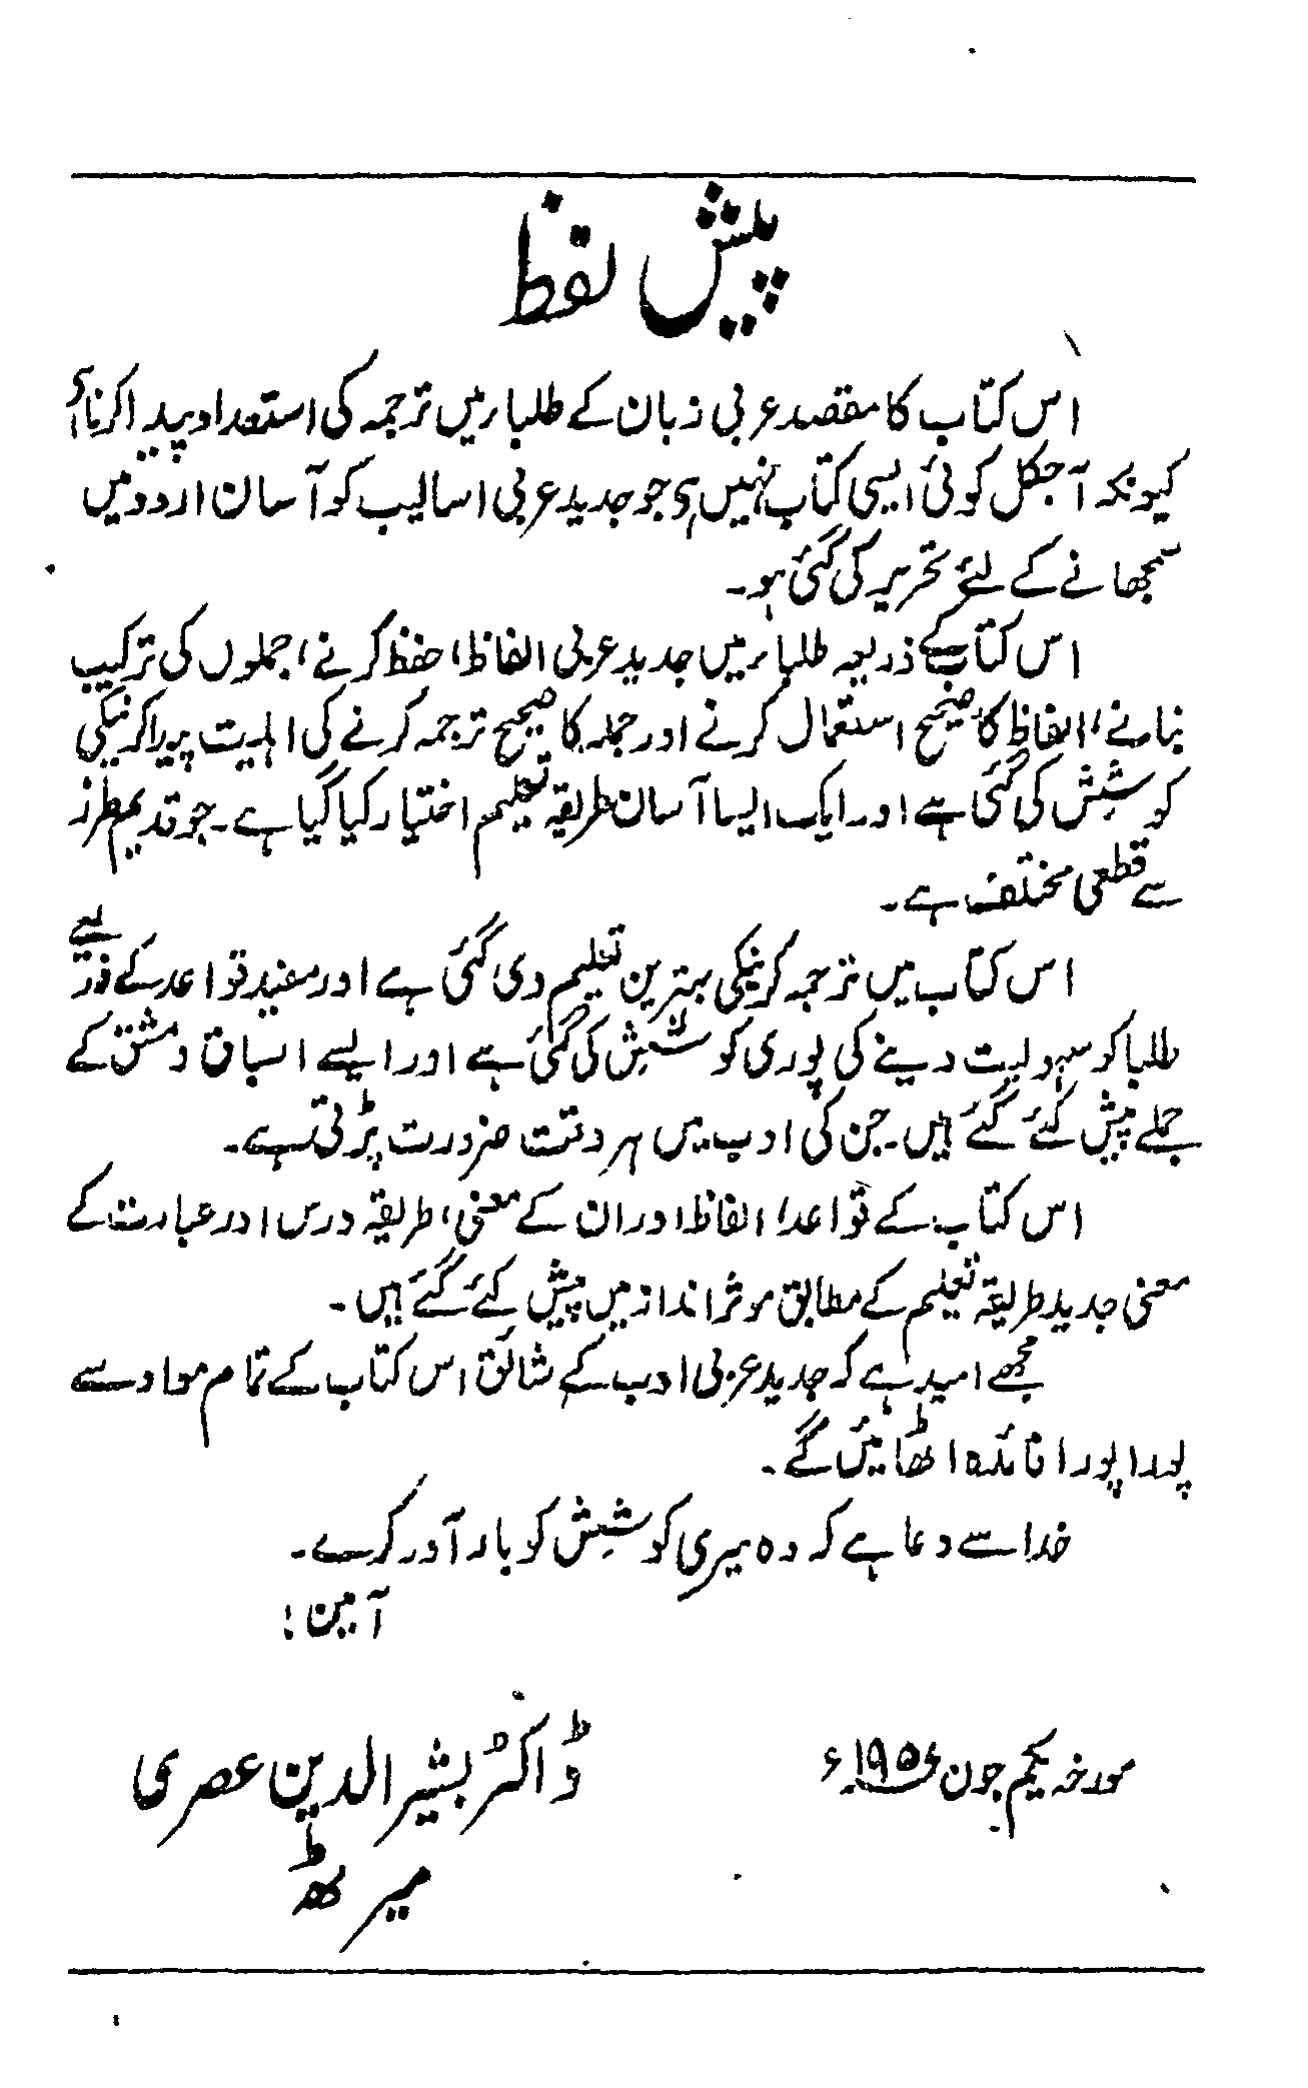 پیش لفظ
اس کتاب کا مقصد عربی زبان کے طلباء میں ترجمہ کی استعداد پیدا کرنا ہے
کیونکہ آجکل کوئی ایسی کتاب نہیں ہے جو جدید عربی اسالیب کو آسان اردو میں
سمجھانے کے لئے تحریر کی گئی ہو۔
اس کتاب کے ذریعہ طلباء میں جدید عربی الفاظ، حفظ کرنے، جملوں کی ترکیب
بنانے، الفاظ کا صحیح استعمال کرنے اور جملہ کا صحیح ترجمہ کرنے کی اہلیت پیدا کرنیکی
کوشش کی گئی ہے اور ایک ایسا آسان طریقہ تعلیم اختیار کیا گیا ہے۔ جو قدیم طرز
سے قطعی مختلف ہے۔
اس کتاب میں ترجمہ کرنیکی بہترین تعلیم دی گئی ہے اور مفید قواعد کے ذریعے
طلبا کو سہولیت دینے کی پوری کوشش کی گئی ہے اور ایسے اسباق و مشق کے
جملے پیش کئے گئے ہیں۔ جن کی ادب میں ہر وقت ضرورت پڑتی ہے۔
اس کتاب کے قواعد، الفاظ اور ان کے معنی، طریقہ درس اور عبارت کے
معنی جدید طریقہ تعلیم کے مطابق موثر انداز میں پیش کئے گئے ہیں۔
مجھے امید ہے کہ جدید عربی ادب کے شائق اس کتاب کے تمام مواد سے
پورا پورا فائدہ اٹھائیں گے۔
خدا سے دعا ہے کہ وہ میری کوشش کو بار آور کرے۔
آمین !
مورخہ یکم جون ء
ڈاکٹر بشیر الدین عصری
میرٹھ